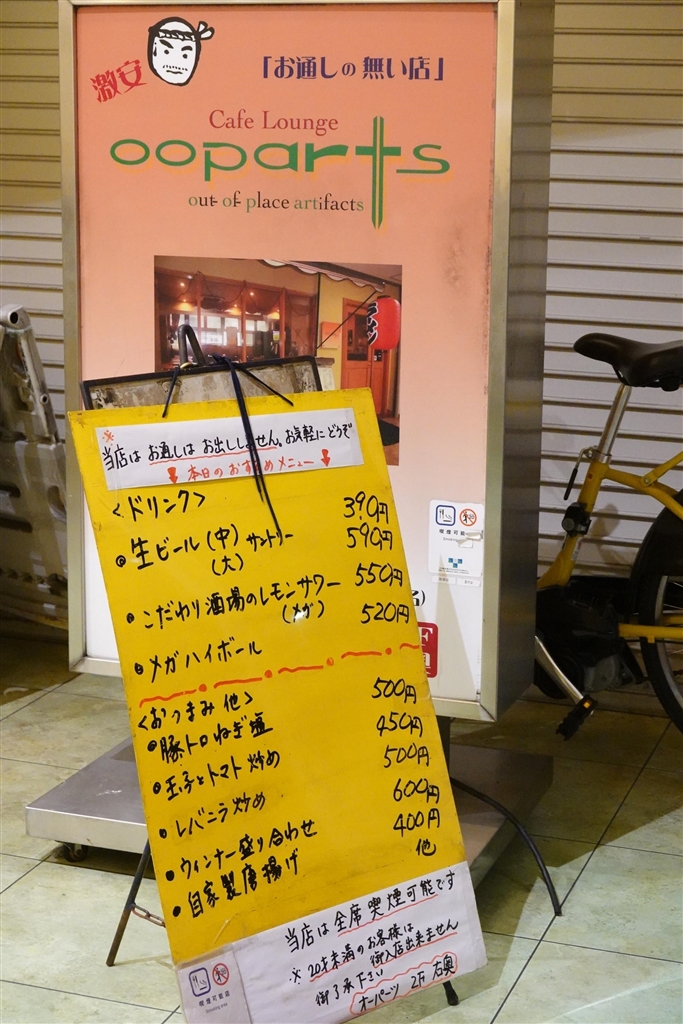 激安
「お通しの無い店」
Cafe Lounge
ooparts
out of place artifacts
※
当店は お通しは お出ししません。お気軽に どうぞ
本日の おすすめ メニュー
<ドリンク>
• 生ビール (中) サントリー 390円
(大) 590円
• こだわり酒場のレモンサワー 550円
(メガ)
• メガハイボール 520円
<おつまみ 他>
• 豚トロねぎ塩 500円
• 玉子とトマト炒め 450円
• レバニラ炒め 500円
• ウィンナー盛り合わせ 600円
• 自家製唐揚げ 400円
他
当店は 全席 喫煙可能です
※ 20才未満のお客様は
御入店出来ません
御了承下さい
オーパーツ 2F 右奥
喫煙可能店
Smoking area
喫煙可能